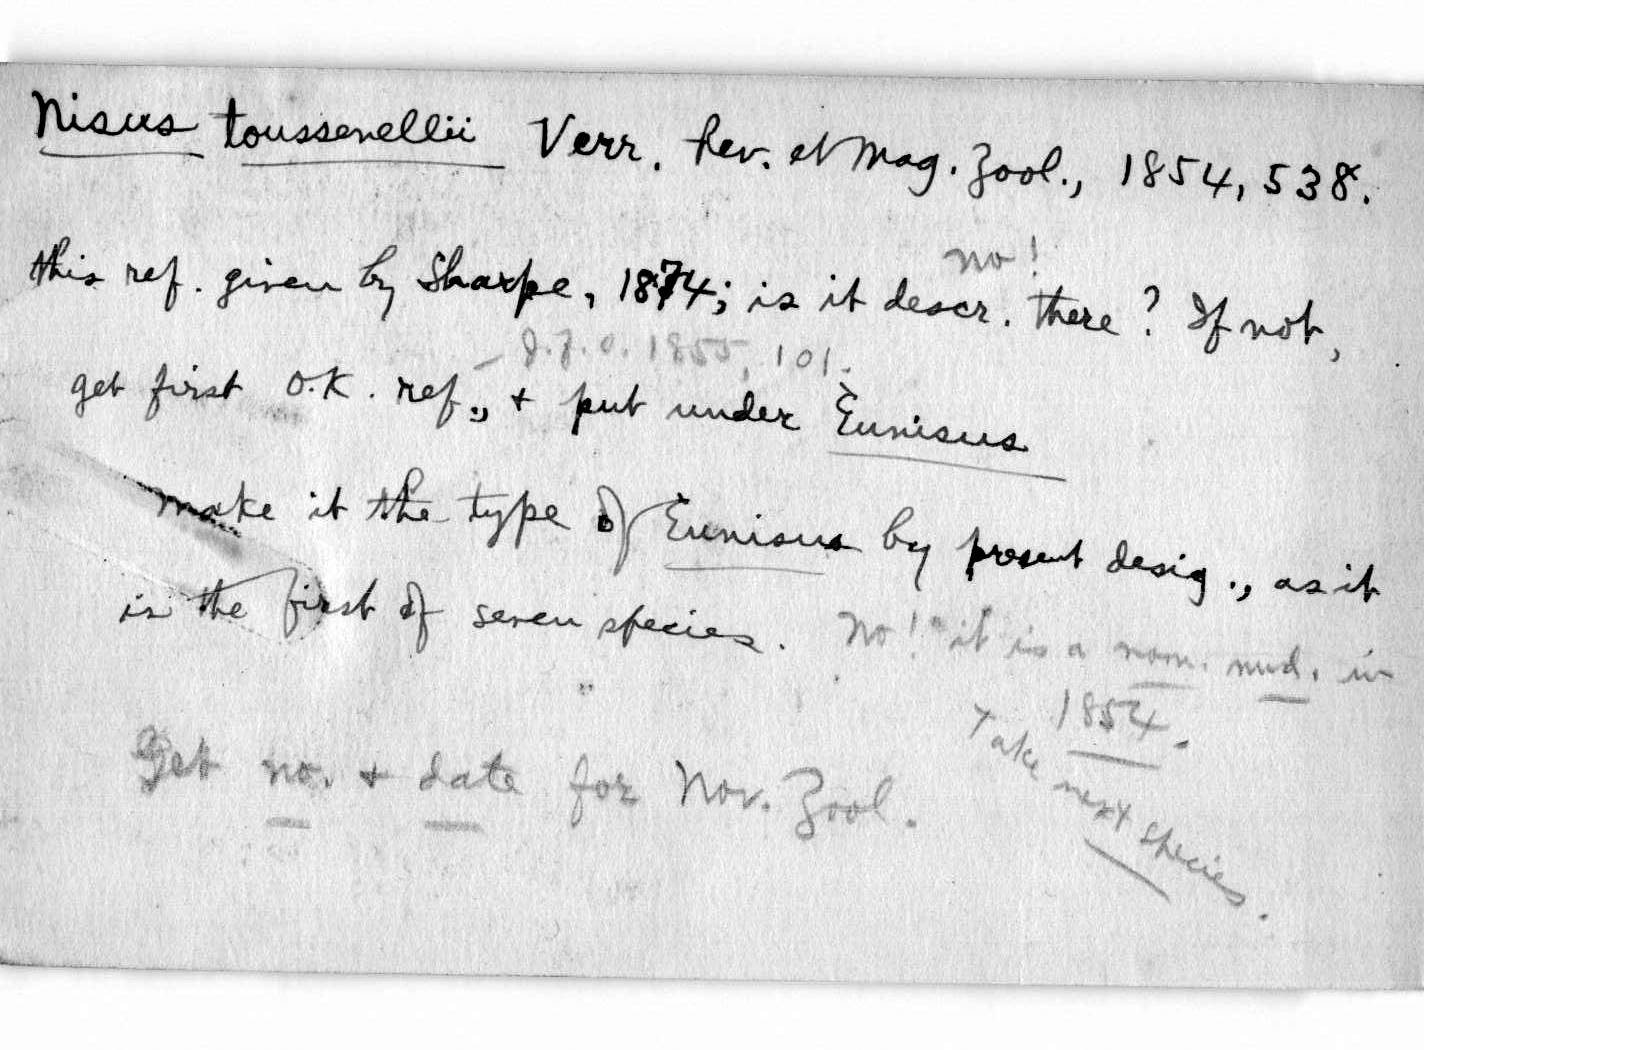 Nisus toussenellii Verr. Rev. et Mag. Zool., 1854, 538.
no!
this ref. given by Sharpe, 1874; is it descr. there? If not,
- J.f.O. 1855, 101.
get first O.K. ref., + put under Eunisus
make it the type of Eunisus by present desig., as it
is the first of seven species. No! it is a nom. nud. in
1854.
Take next species.
Get no. + date for Nov. Zool.